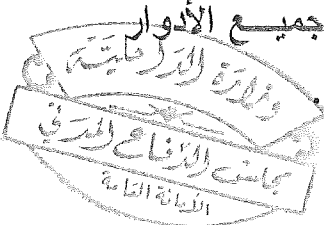 جميع الأدوار
وزارة الداخلية
مجلس الدفاع المدني
الأمانة العامة